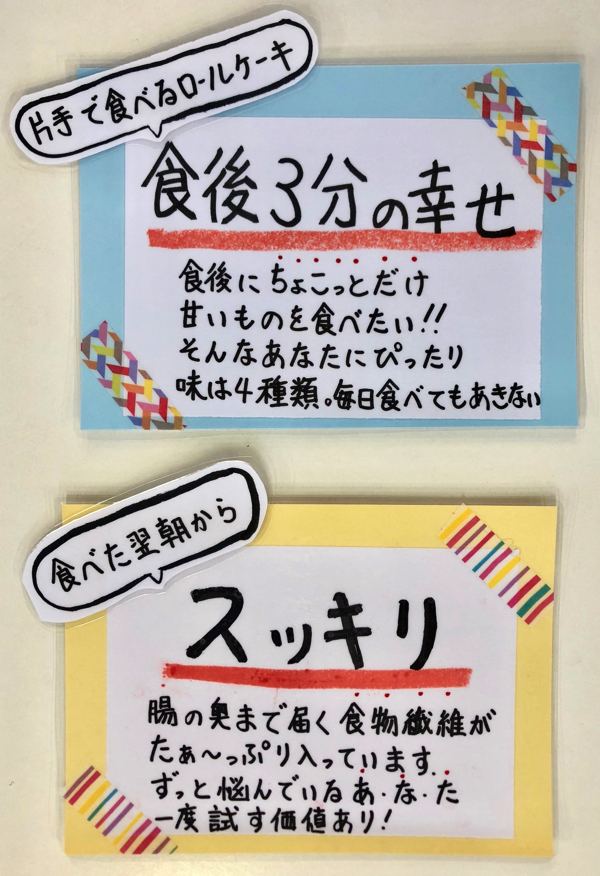 片手で食べるロールケーキ
食後3分の幸せ
食後にちょこっとだけ
甘いものを食べたい!!
そんなあなたにぴったり
味は4種類。毎日食べてもあきない
食べた翌朝から
スッキリ
腸の奥まで届く食物繊維が
たぁ〜っぷり入っています
ずっと悩んでいるあ・な・た
一度試す価値あり!